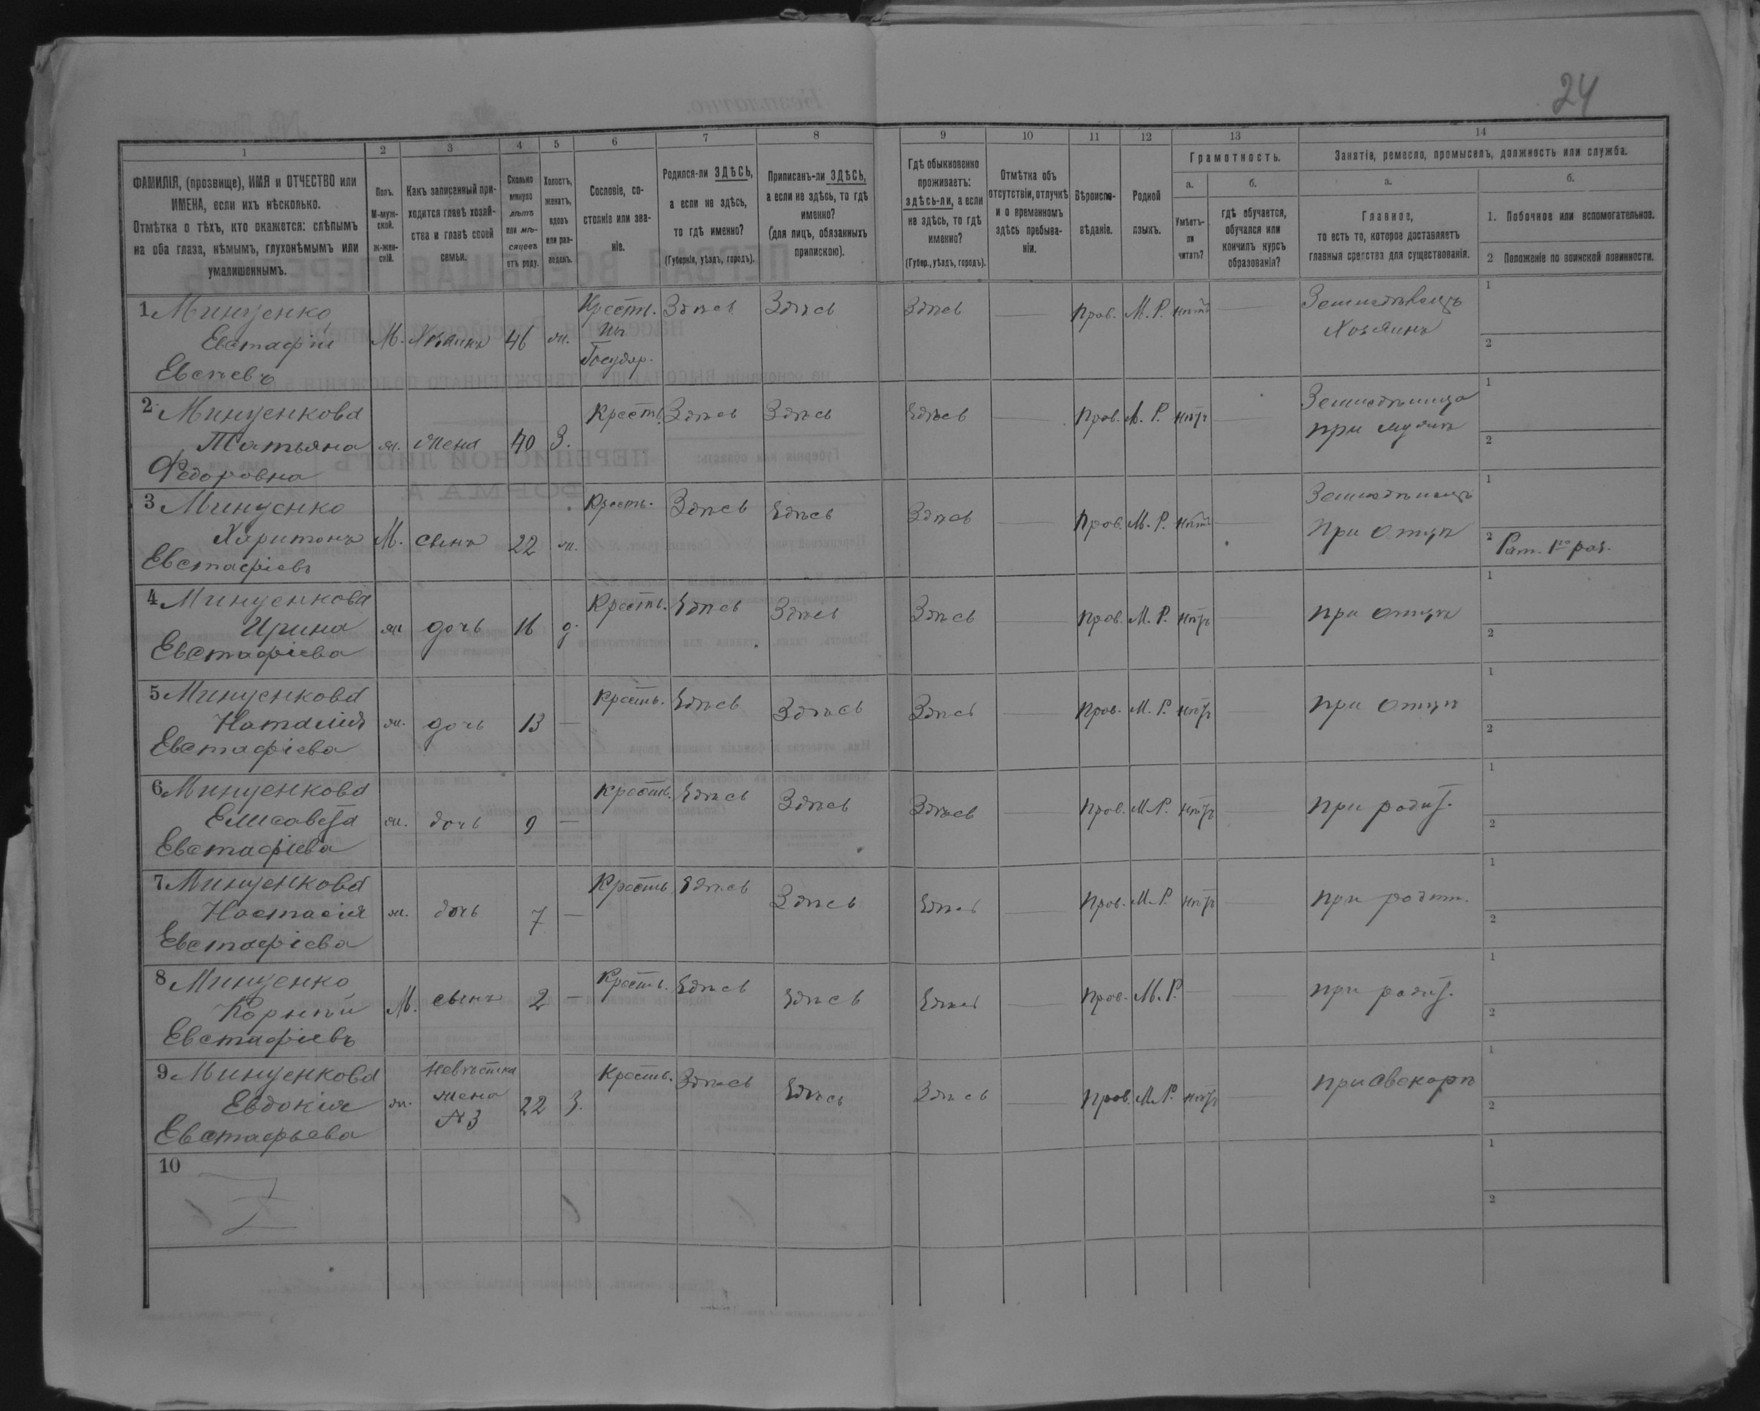 24
1 2 3 4 5 6 7 8 9 10 11 12 13 14
ФАМИЛІЯ, (прозвище), ИМЯ и ОТЧЕСТВО или
ИМЕНА, если ихъ нѣсколько.
Отмѣтка о тѣхъ, кто окажется: слѣпымъ
на оба глаза, нѣмымъ, глухонѣмымъ или
умалишеннымъ.
Полъ.
М-муж-
ской.
ж-жен-
скій.
Какъ записанный при-
ходится главѣ хозяй-
ства и главѣ своей
семьи.
Сколько
минуло
лѣтъ
или мѣ-
сяцевъ
отъ роду.
Холостъ,
женатъ,
вдовъ
или раз-
веденъ.
Сословіе, со-
стояніе или зва-
ніе.
Родился-ли ЗДѢСЬ,
а если не здѣсь,
то гдѣ именно?
(Губернія, уѣздъ, городъ).
Приписанъ-ли ЗДѢСЬ,
а если не здѣсь, то гдѣ
именно?
(для лицъ, обязанныхъ
припискою).
Гдѣ обыкновенно
проживаетъ:
здѣсь-ли, а если
не здѣсь, то гдѣ
именно?
(Губер., уѣздъ, городъ).
Отмѣтка объ
отсутствіи, отлучкѣ
и о временномъ
здѣсь пребыва-
ніи.
Вѣроиспо-
вѣданіе.
Родной
языкъ.
Грамотность.
а.
Умѣетъ-
ли
читать?
б.
гдѣ обучается,
обучался или
кончилъ курсъ
образованія?
Занятіе, ремесло, промыселъ, должность или служба.
а.
Главное,
то есть то, которое доставляетъ
главныя средства для существованія.
б.
1. Побочное или вспомогательное.
2 Положеніе по воинской повинности.
1 Минуенко
Евстафій
Евсѣевъ
М. Хозяинъ 46 ж.
Кресть
изъ
Государ.
Здѣсь Здѣсь Здѣсь — Прав. М. Р. нѣтъ —
Земледѣлецъ
Хозяинъ
1
2
2 Минуенкова
Татьяна
Федоровна
ж. жена 40 З. Крест. Здѣсь Здѣсь Здѣсь — Прав. М. Р. нѣтъ —
при мужѣ
1
2
3 Минуенко
Харитонъ
Евстафіевъ
М. сынъ 22 ж. Крест. Здѣсь Здѣсь Здѣсь — Прав. М. Р. нѣтъ —
При отцѣ
1
2 Рат. 1го раз.
4 Минуенкова
Ирина
Евстафіева
ж. дочь 16 д. Крест. Здѣсь Здѣсь Здѣсь — Прав. М. Р. нѣтъ — при отцѣ
1
2
5 Минуенкова
Наталія
Евстафіева
ж. дочь 13 — Крест. Здѣсь Здѣсь Здѣсь — Прав. М. Р. нѣтъ — при отцѣ
1
2
6 Минуенкова
Елисавета
Евстафіева
ж. дочь 9 — Крест. Здѣсь Здѣсь Здѣсь — Прав. М. Р. нѣтъ — при родит.
1
2
7 Минуенкова
Настасія
Евстафіева
ж. дочь 7 — Крест. Здѣсь Здѣсь Здѣсь — Прав. М. Р. нѣтъ — при родит.
1
2
8 Минуенко
Корнѣй
Евстафіевъ
М. сынъ 2 — Крест. Здѣсь Здѣсь Здѣсь — Прав. М. Р. — — при родит.
1
2
9 Минуенкова
Евдокія
Евстафьева
ж.
невѣстка
жена
№3
22 З. Крест. Здѣсь Здѣсь Здѣсь — Прав. М. Р. нѣтъ — при свекорѣ
1
2
10
1
2